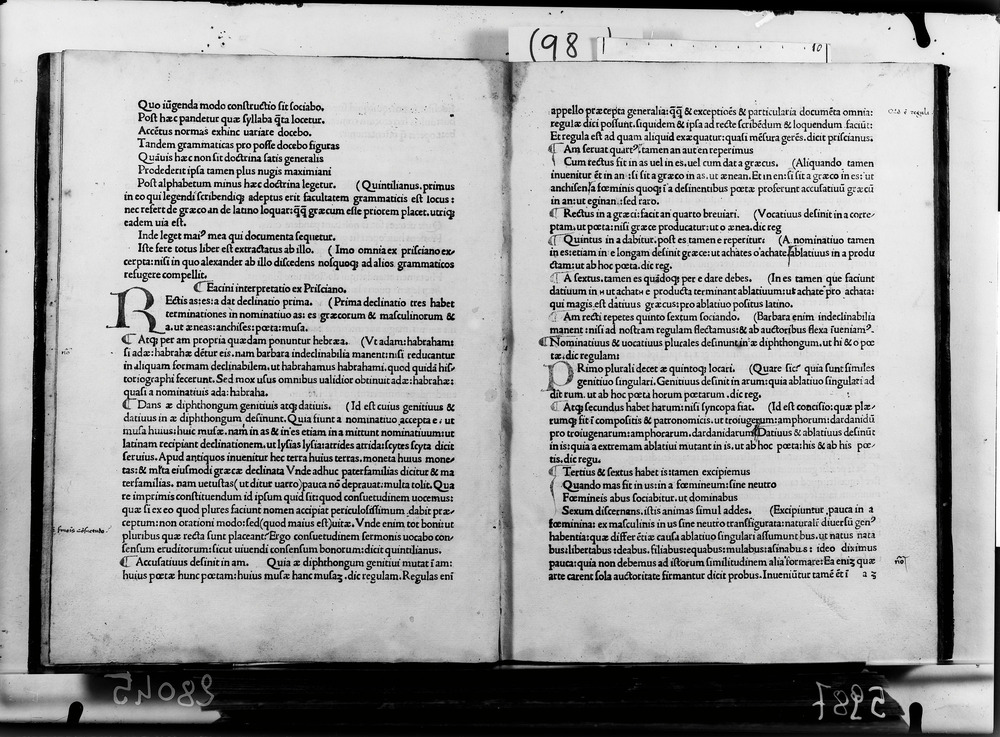 (98)
10
Quo iūgenda modo constructio sit sociabo.
Post hæc pandetur quæ syllaba q̄ta locetur.
Accētus normas exhinc uariate docebo.
Tandem grammaticas pro posse docebo figuras
Quāuis hæc non sit doctrina satis generalis
Proderit ipsa tamen plus nugis maximiani
Post alphabetum minus hæc doctrina legetur. (Quintilianus. primus
in eo qui legendi scribendiq; adeptus erit facultatem grammaticis est locus:
nec refert de græco an de latino loquar: q̄q̄ græcum esse priorem placet. utriq;
eadem uia est.
Inde leget mai⁹ mea qui documenta sequetur.
Iste fere totus liber est extractatus ab illo. (Imo omnia ex prisciano ex-
cerpta: nisi in quo alexander ab illo discedens nosquoq; ad alios grammaticos
refugere compellit.
¶ Eacini interpretatio ex Prisciano.
REctis as: es: a dat declinatio prima. (Prima declinatio tres habet
terminationes in nominatiuo as: es græcorum & masculinorum &
a. ut æneas: anchises: pœta: musa.
¶ Atq; per am propria quædam ponuntur hebræa. (Vt adam: habraham:
si adæ: habrahæ dētur eis. nam barbara indeclinabilia manent: nisi reducantur
in aliquam formam declinabilem. ut habrahamus habrahami. quod quidā his-
toriographi fecerunt. Sed mox usus omnibus ualidior obtinuit adæ: habrahæ:
quasi a nominatiuis ada: habraha.
¶ Dans æ diphthongum genitiuis atq; datiuis. (Id est cuius genitiuus &
datiuus in æ diphthongum desinunt. Quia fiunt a nominatiuo accepta e: ut
musa huius: huic musæ. nam in as & in es etiam in a mittunt nominatiuum: ut
latinam recipiant declinationem. ut lysias lysia: atrides atrida: scytes scyta dicit
seruius. Apud antiquos inuenitur hec terra huius terras. moneta huius mone-
tas: & m̄lta eiusmodi græcæ declinata Vnde adhuc paterfamilias dicitur & ma
terfamilias. nam uetustas (ut ditut uarro) pauca nō deprauat: multa tolit. Qua
re imprimis constituendum id ipsum quid sit: quod consuetudinem uocemus:
quæ si ex eo quod plures faciunt nomen accipiat periculosissimum dabit præ-
ceptum: non orationi modo: sed (quod maius est) uitæ. Vnde enim tot boni: ut
pluribus quæ recta sunt placeant? Ergo consuetudinem sermonis uocabo con-
sensum eruditorum: sicut uiuendi consensum bonorum: dicit quintilianus.
¶ Accusatiuus desinit in am. Quia æ diphthongum genitiui mutat ī am:
huius pœtæ hunc pœtam: huius musæ hanc musaȝ. dic regulam. Regulas eni
appello præcepta generalia: q̄q̄ & exceptiōēs & particularia documēta omnia:
regulæ dici possunt. siquidem & ipsa ad recte scribēdum & loquendum faciūt:
Et regula est ad quam aliquid exæquatur: quasi mēsura gerēs. dicit priscianus.
¶ Am seruat quart⁹. tamen an aut en reperimus
Cum rectus fit in as uel in es. uel cum dat a græcus. (Aliquando tamen
inuenitur ēt in an: si sit a græco in as. ut ænean. Et in en: si sit a græco in es: ut
anchisen/a fœminis quoq; ī a desinentibus poetæ proferunt accusatiuū græcū
in an: ut eginan: sed raro.
¶ Rectus in a græci: facit an quarto breuiari. (Vocatiuus desinit in a corre-
ptam. ut pœta: nisi græce producatur: ut o ænea. dic reg
¶ Quintus in a dabitur. post es tamen e reperitur: (A nominatiuo tamen
in es: etiam in e longam desinit græce: ut achates o achate/ablatiuus in a produ
ctam: ut ab hoc pœta. dic reg.
¶ A sextus. tamen es quādoq; per e dare debes. (In es tamen que faciunt
datiuum in η ut achatη e producta terminant ablatiuum: ut achate pro achata:
qui magis est datiuus græcus: pro ablatiuo positus latino.
¶ Am recti repetes quinto sextum sociando. (Barbara enim indeclinabilia
manent: nisi ad nostram regulam flectamus: & ab auctoribus flexa īueniam⁹.
¶ Nominatiuus & uocatiuus plurales desinunt in æ diphthongum. ut hi & o pœ
tæ. dic regulam:
PRimo plurali decet æ quintoq; locari. (Quare sic? quia sunt similes
genitiuo singulari. Genitiuus desinit in arum: quia ablatiuo singulari ad
dit rum. ut ab hoc pœta horum pœtarum. dic reg.
¶ Atq; secundus habet harum: nisi syncopa fiat. (Id est concisio: quæ plæ-
rumq; fit ī compositis & patronomicis. ut troiugerum: amphorum: dardanidū
pro troiugenarum: amphorarum. dardanidarum/Datiuus & ablatiuus desinūt
in is: quia a extremam ablatiui mutant in is. ut ab hoc pœta: his & ab his pœ-
tis. dic regu.
¶ Tertius & sextus habet is: tamen excipiemus
Quando mas fit in us: in a fœmineum: sine neutro
Fœmineis abus sociabitur. ut dominabus
Sexum discernens. istis animas simul addes. (Excipiuntur pauca in a
fœminina: ex masculinis in us sine neutro transfigurata: naturalē diuersū gen⁹
habentia: quæ differētiæ causa ablatiuo singulari assumunt bus. ut natus nata
bus: libertabus: deabus. filiabus: equabus: mulabus: asinabus: ideo diximus
pauca: quia non debemus ad istorum similitudinem alia formare: Ea eniȝ quæ
arte carent sola auctoritate firmantur dicit probus. Inueniūtur tamē ēt ī a 3
28045
5987